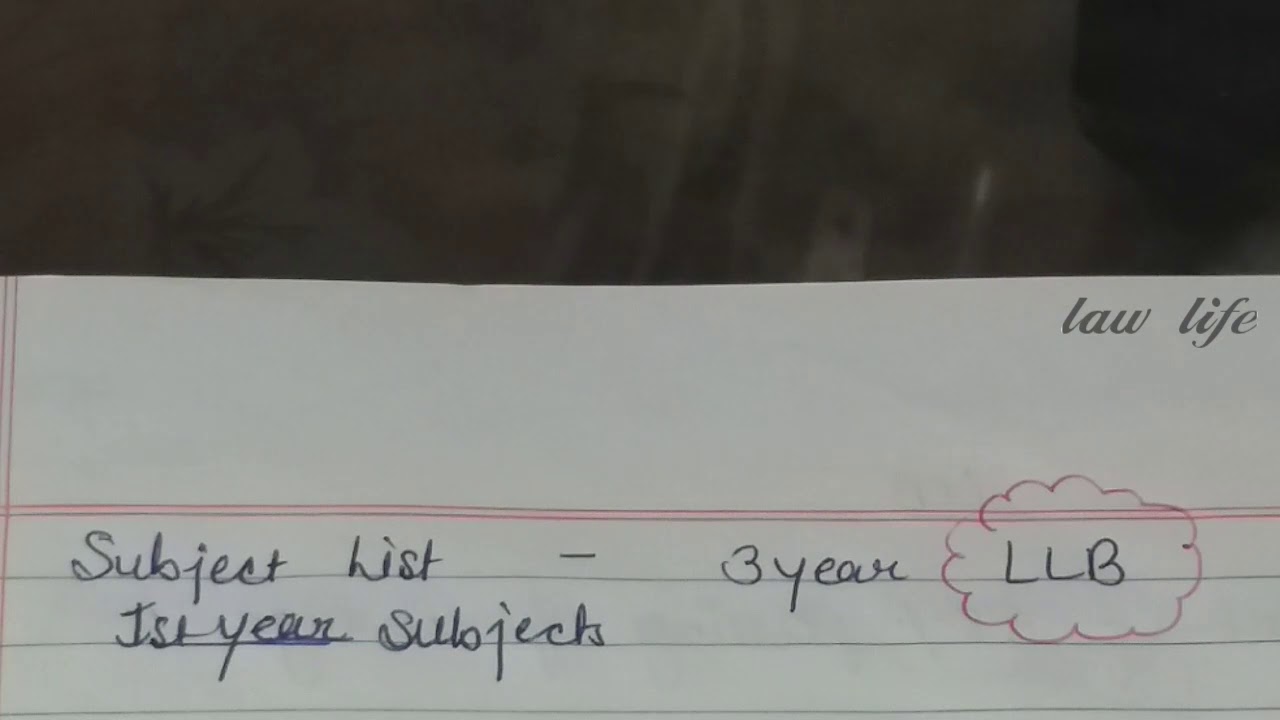 law life
Subject List - 3 year LLB
Ist year Subjects